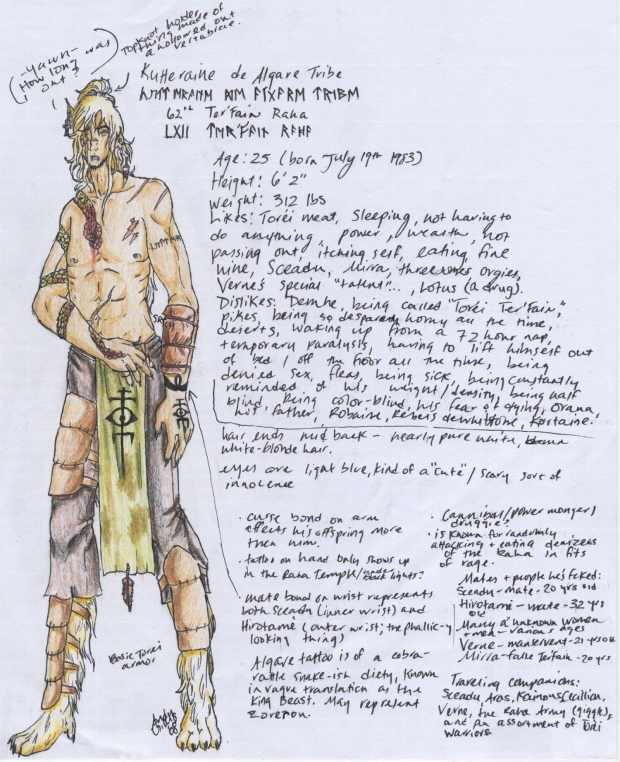 -yawn-
How long was
I out?
Topknot holder
thing made of
a hollowed out
vertabrae.
Kutteraine de Algare Tribe
62nd Ter'Fain Raha
LXII
Age: 25 (born July 19th 1983)
Height: 6' 2"
Weight: 312 lbs
Likes: Torei meat, sleeping, not having to
do anything, power, wealth, not
passing out, itching self, eating, fine
wine, Sceadu, Mirra, orgies,
Verne's special "talent"..., Lotus (a drug).
Dislikes: being called "Torei Ter'Fain,"
pikes, being so desparely horny all the time,
deserts, waking up from a 72 hour nap,
temporary paralysis, having to lift himself out
of bed / off the floor all the time, being
denied sex, fleas, being sick, being constantly
reminded of his weight/density, being half
blind, being color-blind, his fear of dying, Orana,
his father, Robaine, Rebels
hair ends mid back - nearly pure white,
white-blonde hair.
eyes are light blue, kind of a "cute" / scary sort of
innocence
• curse bond on arm
effects his offspring more
then him.
• tattoo on hand only shows up
in the Raha Temple/under
black lights?
• mate bond on wrist represents
both Sceadu (inner wrist) and
Hirotame (outer wrist; the phallic-y
looking thing)
• Algare tattoo is of a cobra-
rattle snake-ish diety, known
in vague translation as the
King Beast. May represent
• Cannibal/power monger/
druggie?
• is known for randomly
attacking + eating denizens
of the Raha in fits
of rage.
Mates + people he's fcked:
Sceadu - mate - 20 yrs old
Hirotame - mate - 32 yrs
old
Many a' unknown women
+ men - various ages
Verne - manservent - 21 yrs old
Mirra - false Ter'fain - 20 yrs.
Traveling companions:
Sceadu, Aras,
Verne, the Raha Army (giggle),
and an assortment of Torei
Warriors
Basic Torei
armor
08